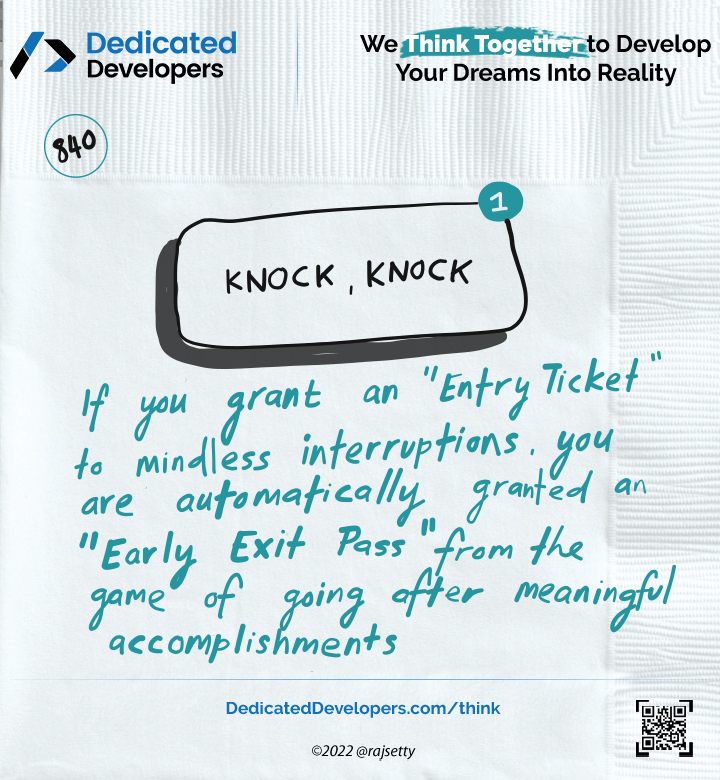 Dedicated
Developers
We Think Together to Develop
Your Dreams Into Reality
840
1
KNOCK, KNOCK
If you grant an "Entry Ticket"
to mindless interruptions, you
are automatically granted an
"Early Exit Pass" from the
game of going after meaningful
accomplishments
DedicatedDevelopers.com/think
©2022 @rajsetty